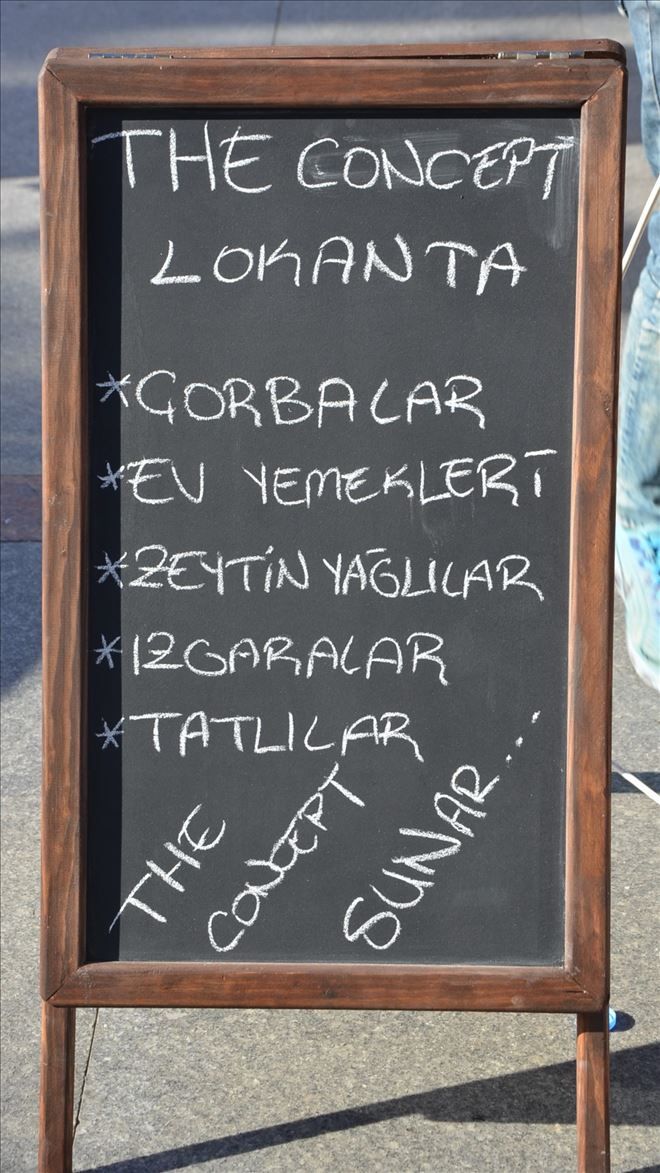 THE CONCEPT
LOKANTA
*ÇORBALAR
*EV YEMEKLERİ
*ZEYTİN YAĞLILAR
*IZGARALAR
*TATLILAR
THE CONCEPT SUNAR...